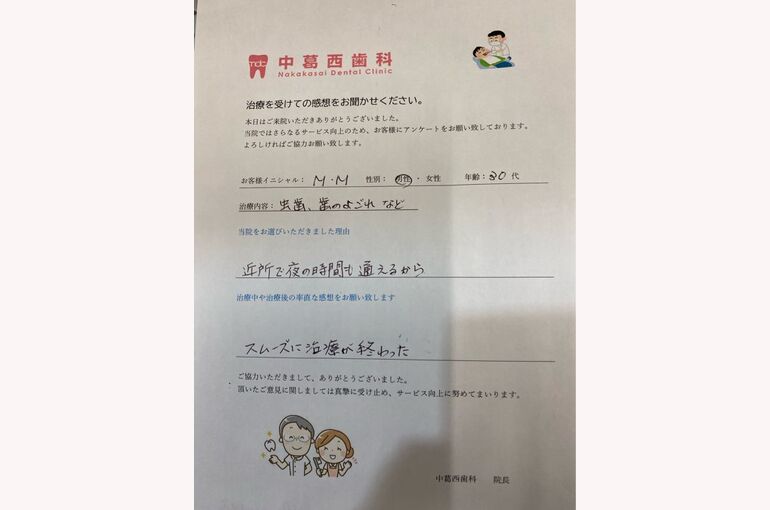 ndc 中葛西歯科
Nakakasai Dental Clinic
治療を受けての感想をお聞かせください。
本日はご来院いただきありがとうございました。
当院ではさらなるサービス向上のため、お客様にアンケートをお願い致しております。
よろしければご協力お願い致します。
お客様イニシャル： M・M 性別： 男性 ・ 女性 年齢：30 代
治療内容： 虫歯、歯のよごれ など
当院をお選びいただきました理由
近所で夜の時間も通えるから
治療中や治療後の率直な感想をお願い致します
スムーズに治療が終わった
ご協力いただきまして、ありがとうございました。
頂いたご意見に関しましては真摯に受け止め、サービス向上に努めてまいります。
中葛西歯科 院長